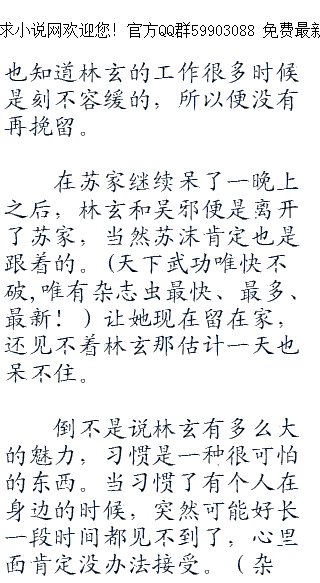 求小说网欢迎您！官方QQ群59903088 免费最新
也知道林玄的工作很多时候
是刻不容缓的，所以便没有
再挽留。
在苏家继续呆了一晚上
之后，林玄和吴邪便是离开
了苏家，当然苏沫肯定也是
跟着的。(天下武功唯快不
破,唯有杂志虫最快、最多、
最新！)让她现在留在家，
还见不着林玄那估计一天也
呆不住。
倒不是说林玄有多么大
的魅力，习惯是一种很可怕
的东西。当习惯了有个人在
身边的时候，突然可能好长
一段时间都见不到了，心里
面肯定没办法接受。（杂